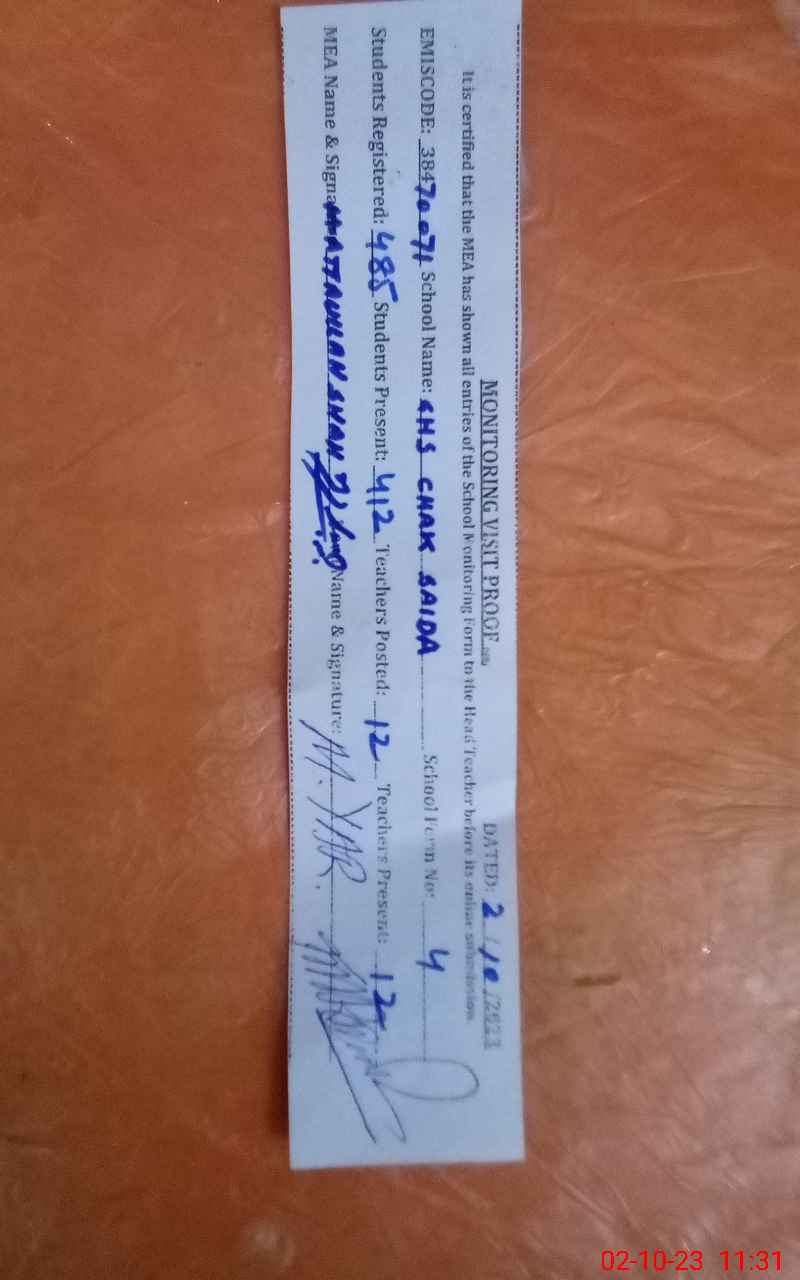 MONITORING VISIT PROOF DATED: 2/10/2023
It is certified that the MEA has shown all entries of the School Monitoring Form to the Head Teacher before its online submission.
EMISCODE: 38470071 School Name: GHS CHAK SAIDA School Form No: 4
Students Registered: 485 Students Present: 412 Teachers Posted: 12 Teachers Present: 12
MEA Name & Signa ATTAULLAH SHAH Name & Signature: M. YAR.
02-10-23 11:31